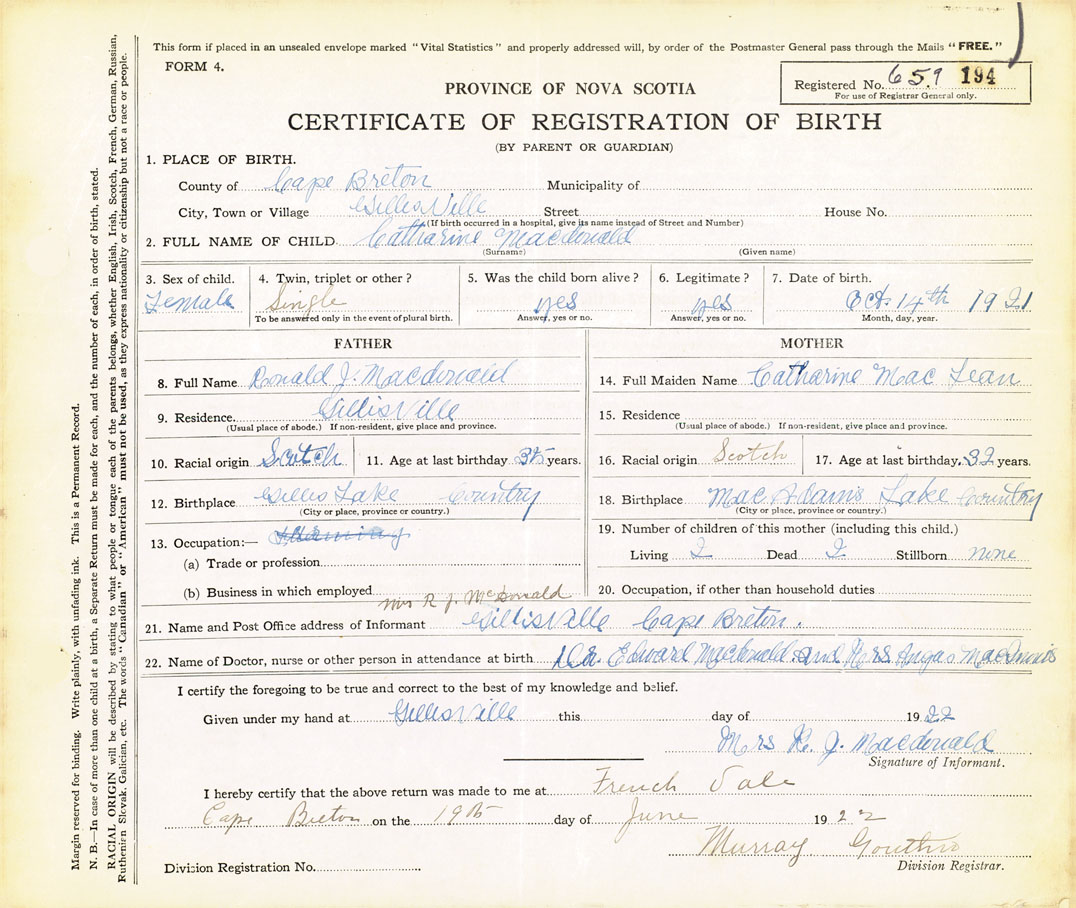 This form if placed in an unsealed envelope marked "Vital Statistics" and properly addressed will, by order of the Postmaster General pass through the Mails "FREE."
FORM 4.
Registered No. 659 194
For use of Registrar General only.
PROVINCE OF NOVA SCOTIA
CERTIFICATE OF REGISTRATION OF BIRTH
(BY PARENT OR GUARDIAN)
1. PLACE OF BIRTH.
County of Cape Breton Municipality of
City, Town or Village GillisVille Street House No.
(If birth occurred in a hospital, give its name instead of Street and Number)
2. FULL NAME OF CHILD Catharine Macdonald
(Surname) (Given name)
3. Sex of child. 4. Twin, triplet or other? 5. Was the child born alive? 6. Legitimate? 7. Date of birth.
Female Single yes yes Oct. 14th 1921
To be answered only in the event of plural birth. Answer, yes or no. Answer, yes or no. Month, day, year.
FATHER MOTHER
8. Full Name Ronald J. Macdonald 14. Full Maiden Name Catharine Mac Lean
9. Residence. GillisVille 15. Residence
(Usual place of abode.) If non-resident, give place and province. (Usual place of abode.) If non-resident, give place and province.
10. Racial origin Scotch 11. Age at last birthday years. 16. Racial origin Scotch 17. Age at last birthday. 32 years.
12. Birthplace Gillis Lake Country 18. Birthplace Mac Adams Lake Country
(City or place, province or country.) (City or place, province or country.)
13. Occupation:— 19. Number of children of this mother (including this child.)
(a) Trade or profession Living 2 Dead 2 Stillborn none
(b) Business in which employed 20. Occupation, if other than household duties
Mrs R J. McDonald
21. Name and Post Office address of Informant GillisVille Cape Breton.
22. Name of Doctor, nurse or other person in attendance at birth Dr. Edward Macdonald and Mrs Angas
I certify the foregoing to be true and correct to the best of my knowledge and belief.
Given under my hand at GillisVille this day of 1922
Mrs R. J. Macdonald
Signature of Informant.
I hereby certify that the above return was made to me at French Vale
Cape Breton on the 19th day of June 1922
Murray
Division Registrar.
Division Registration No.
Margin reserved for binding. Write plainly, with unfading ink. This is a Permanent Record.
N. B.—In case of more than one child at a birth, a Separate Return must be made for each, and the number of each, in order of birth, stated.
RACIAL ORIGIN will be described by stating to what people or tongue each of the parents belongs, whether English, Irish, Scotch, French, German, Russian,
Ruthenian Slovak, Galician, etc. The words "Canadian" or "American" must not be used, as they express nationality or citizenship but not a race or people.